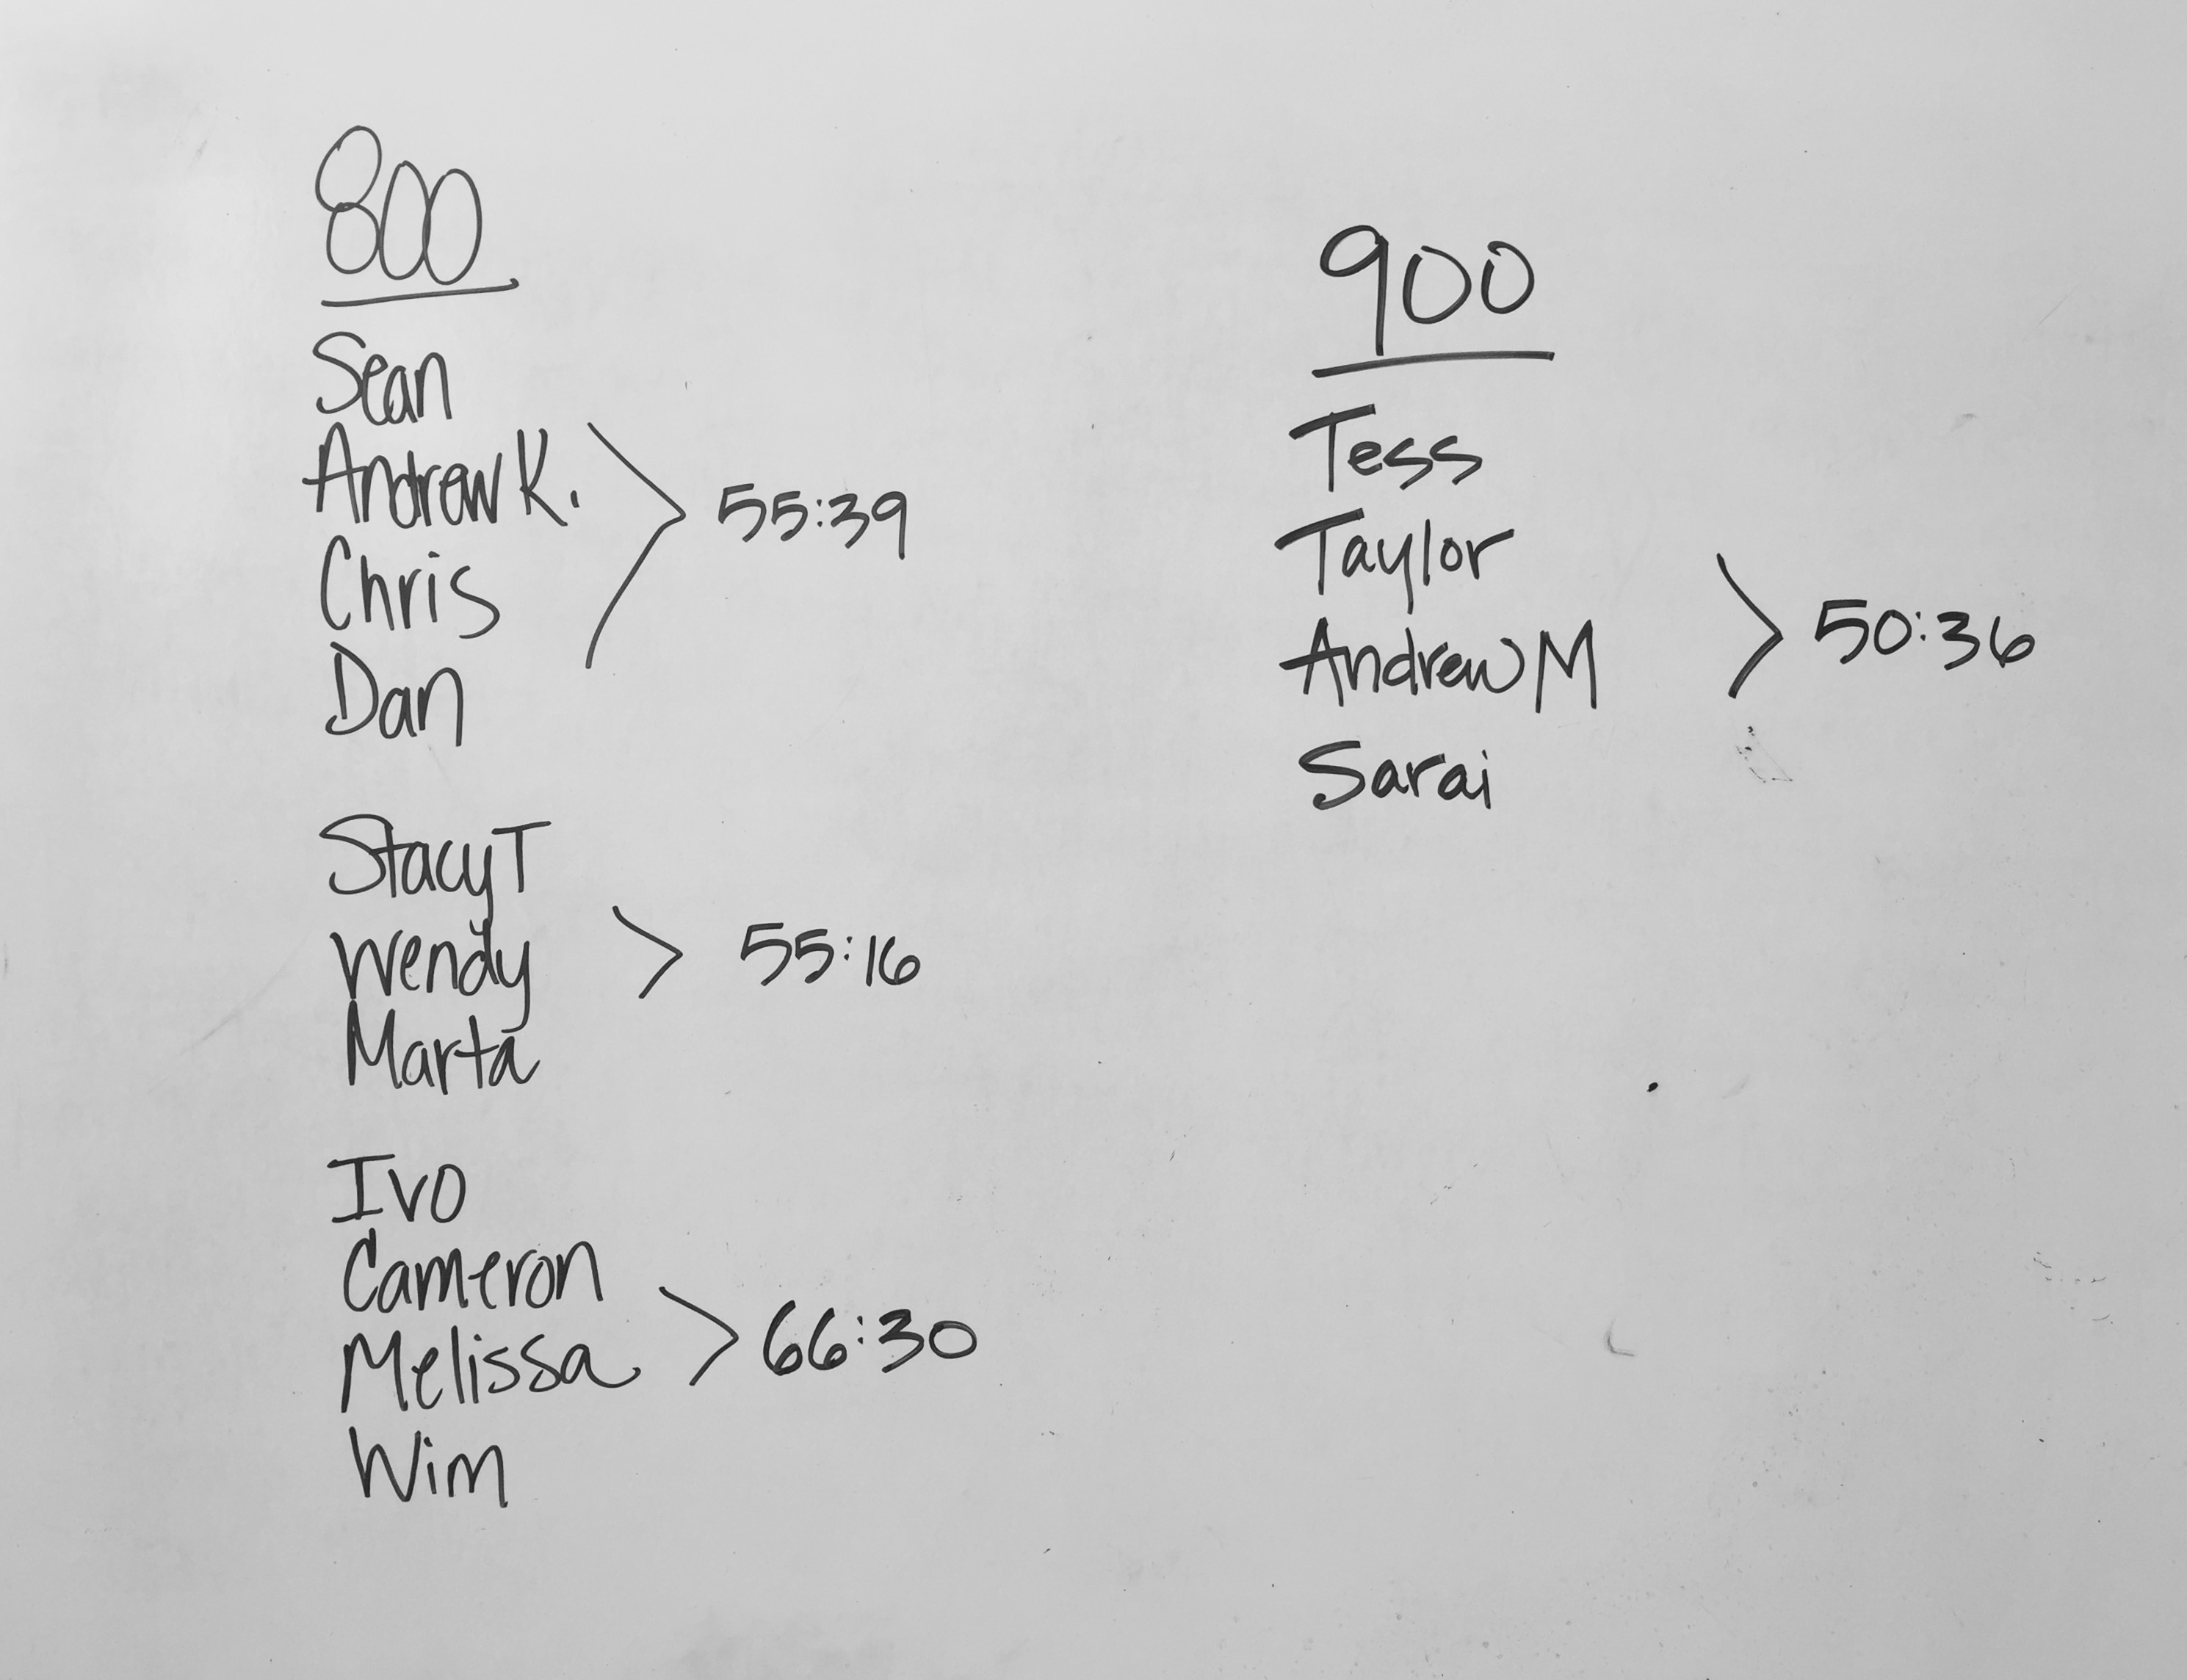 800
Sean
Andrew K.
Chris
Dan
55:39
Stacy T
Wendy
Marta
55:16
Ivo
Cameron
Melissa
Wim
66:30
900
Tess
Taylor
Andrew M
Sarai
50:36